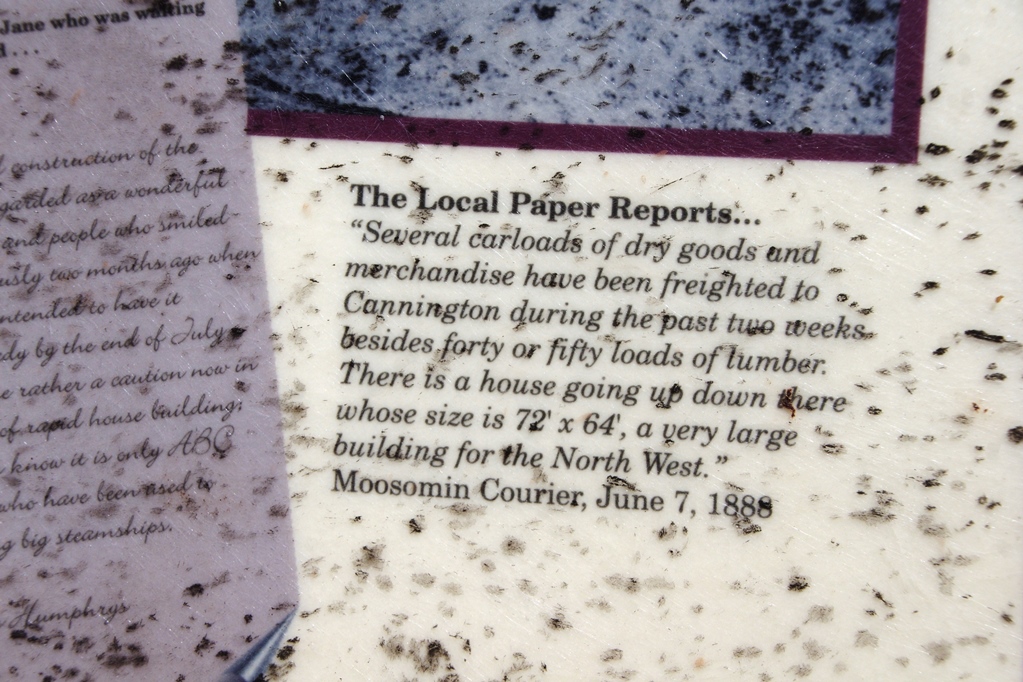 Jane who was waiting
d . . .
construction of the
garded as a wonderful
and people who smiled
usly two months ago when
ntended to have it
dy by the end of July
e rather a caution now in
of rapid house building;
know it is only ABC
who have been used to
g big steamships.
Humphrys
The Local Paper Reports...
“Several carloads of dry goods and
merchandise have been freighted to
Cannington during the past two weeks,
besides forty or fifty loads of lumber.
There is a house going up down there
whose size is 72' x 64', a very large
building for the North West.”
Moosomin Courier, June 7, 1888